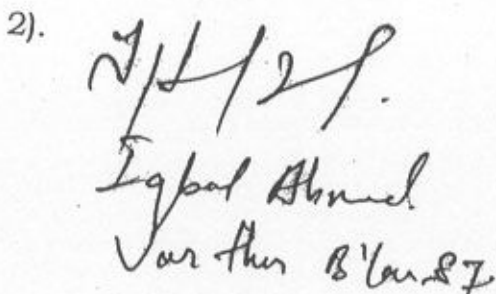 2).
Iqbal Ahmed
Varthur B'lore 87